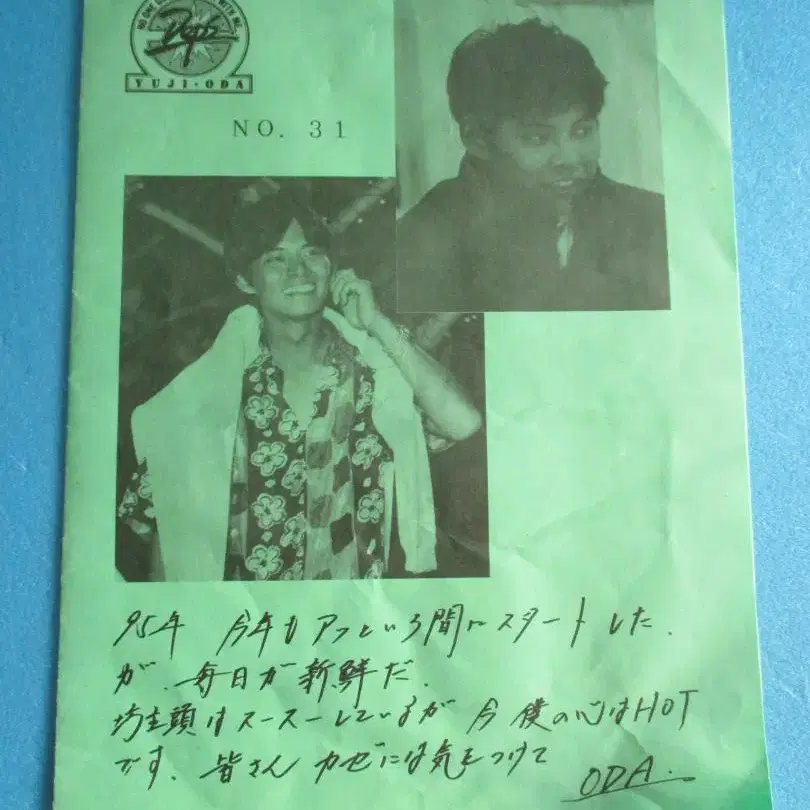 YUJI・ODA
NO. 31
95年 今年もアッという間にスタートした.
が、毎日が新鮮だ.
坊主頭はスースーしているが 今 僕の心はHOT
です. 皆さん カゼには気をつけて
ODA.